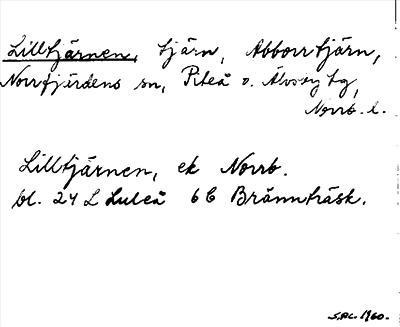 Lilltjärnen, tjärn, Abborrtjärn,
Norrfjärdens sn, Piteå o. Älvsby tg,
Norrb. l.
Lilltjärnen, ek Norrb.
bl. 24 L Luleå 6 b Brännträsk.
1960.